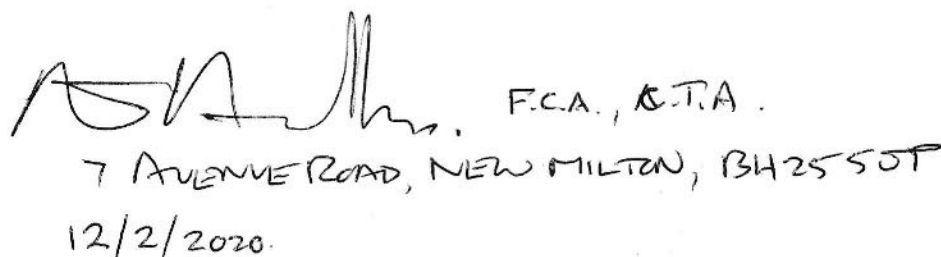 F.C.A., C.T.A.
7 AVENUE ROAD, NEW MILTON, BH25 5JP
12/2/2020.